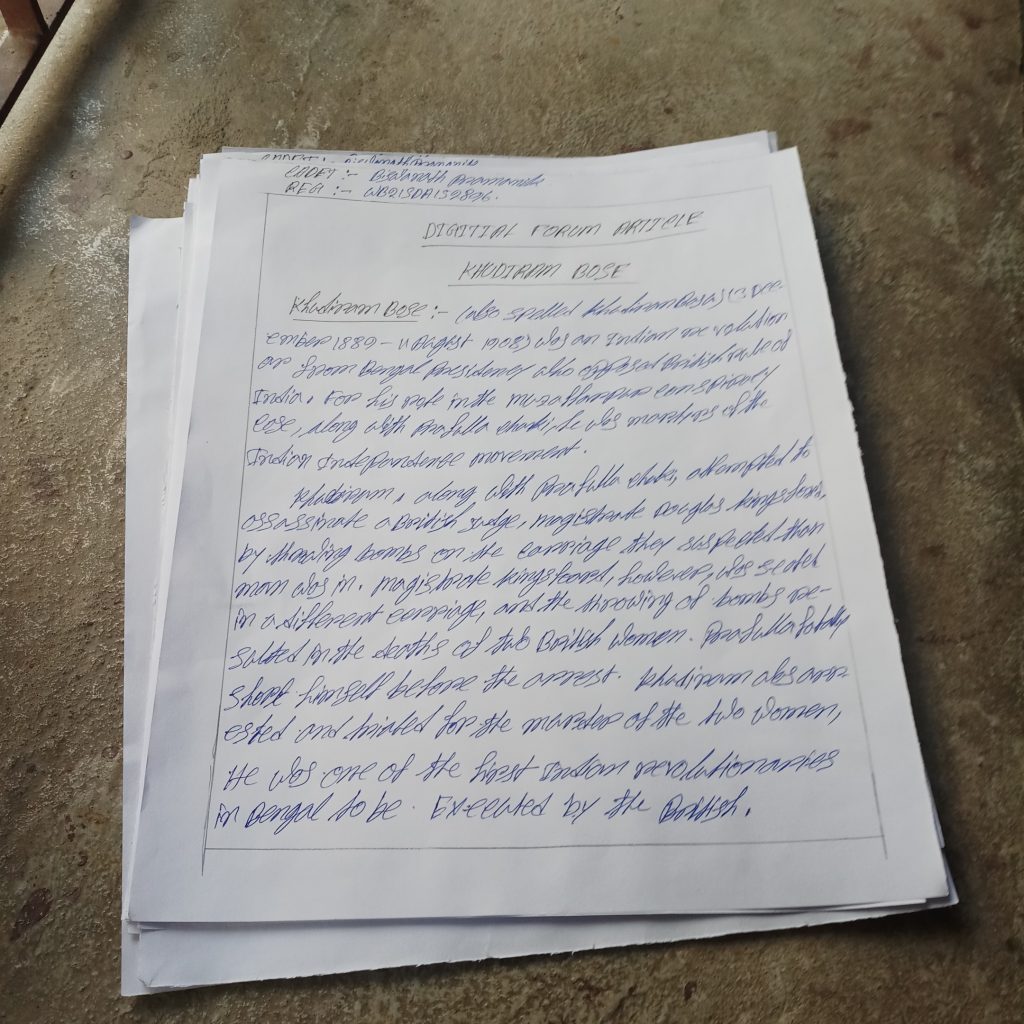 CADET :- Biswanath Pramanik
REG :- WB21SDA159896.
DIGITIAL FORUM ARTICLE
KHUDIRAM BOSE
Khudiram Bose :- (also spelled Khudiram Basu) (3 Dec-
ember 1889 - 11 August 1908) was an Indian revolution
ar from Bengal Presidency who opposed British rule of
India. For his role in the muzaffarpur conspiracy
case, along with Prafulla chaki, he was martyrs of the
Indian Independense movement.
Khudiram, along with Prafulla chaki, attempted to
assassinate a British Judge, magistrate Douglas kingsford,
by throwing bombs on the carriage they suspected than
man was in. magistrate kingsford, however, was seated
in a different carriage, and the throwing of bombs re-
sulted in the deaths of two British women. Prafulla fatally
shot himself before the arrest. Khudiram was arr-
ested and trialed for the murder of the two women,
He was one of the first Indian revolutionaries
in Bengal to be Executed by the British.